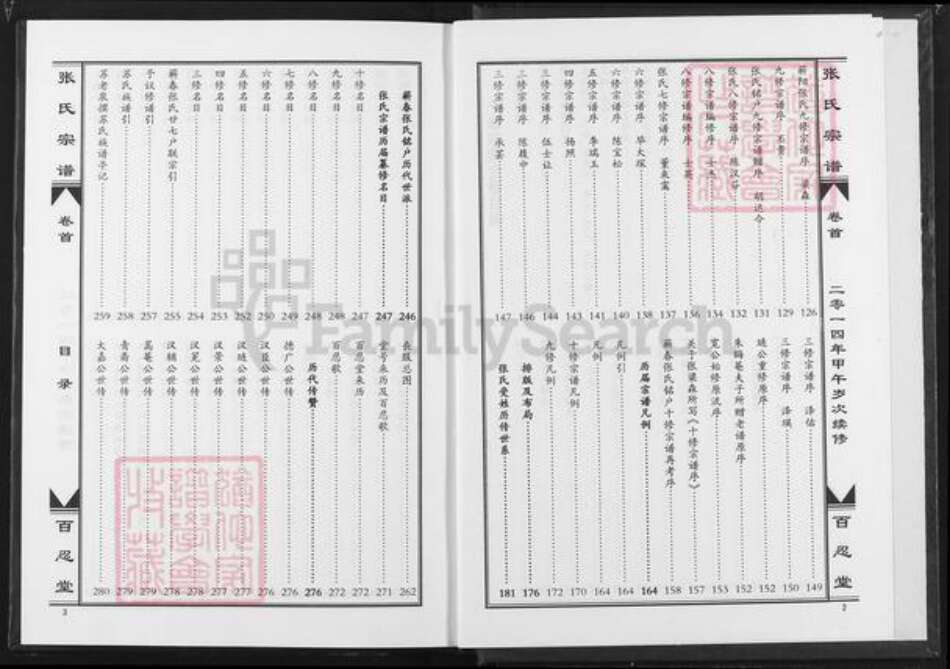 张氏宗谱
卷首
二零一四年甲午岁次续修
百忍堂
2
蕲阳张氏九修宗谱序 126
九修宗谱序 129
张氏铭户九修宗谱赠序 胡达今 131
张氏八修宗谱序 陈汉 132
八修宗谱编修序 134
八修宗谱编修序 156
张氏七修宗谱序 137
六修宗谱序 138
六修宗谱序 陈宝松 140
五修宗谱序 李瑞玉 141
四修宗谱序 杨照 143
三修宗谱序 伍士让 144
三修宗谱序 146
三修宗谱序 承芸 147
三修宗谱序 泽估 149
三修宗谱序 泽璜 150
公重修原序 152
朱晦菴夫子所赠老谱原序 152
宽公始修原流序 153
关于张梁森所写《十修宗谱序》 157
蕲春张氏铭户十修宗谱再考序 158
历届宗谱凡例 164
凡例引 164
凡例 164
十修宗谱凡例 170
九修凡例 172
排版及布局 176
张氏受姓历传世系 181
张氏宗谱
卷首
目录
百忍堂
3
蕲春张氏铭户历代世派 246
张氏宗谱历届纂修名目 247
十修名目 247
九修名目 248
八修名目 248
七修名目 249
六修名目 250
五修名目 252
四修名目 253
三修名目 254
蕲春张氏廿七户联宗引 255
予议修谱引 257
苏氏族谱引 258
苏老泉撰苏氏族谱亭记 259
丧服总图 262
堂号来历及百忍歌 271
百忍堂来历 272
百忍歌 272
历代传赞 276
德广公世传 276
汉臣公世传 276
汉琏公世传 277
汉荣公世传 277
汉冕公世传 278
汉辅公世传 278
蒿菴公世传 279
青斋公世传 279
大嘉公世传 280
FamilySearch